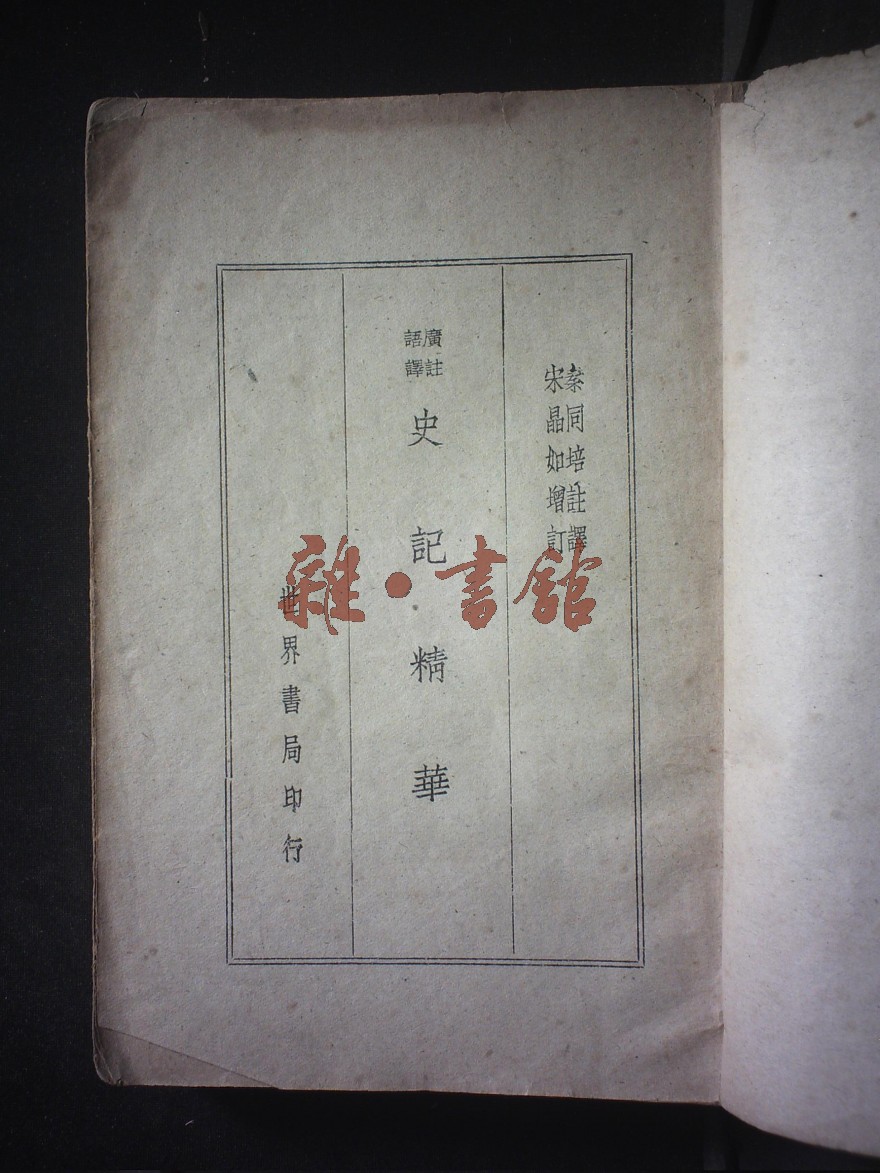 秦同培註譯
宋晶如增訂
廣註
語譯
史記精華
世界書局印行
雜·書館